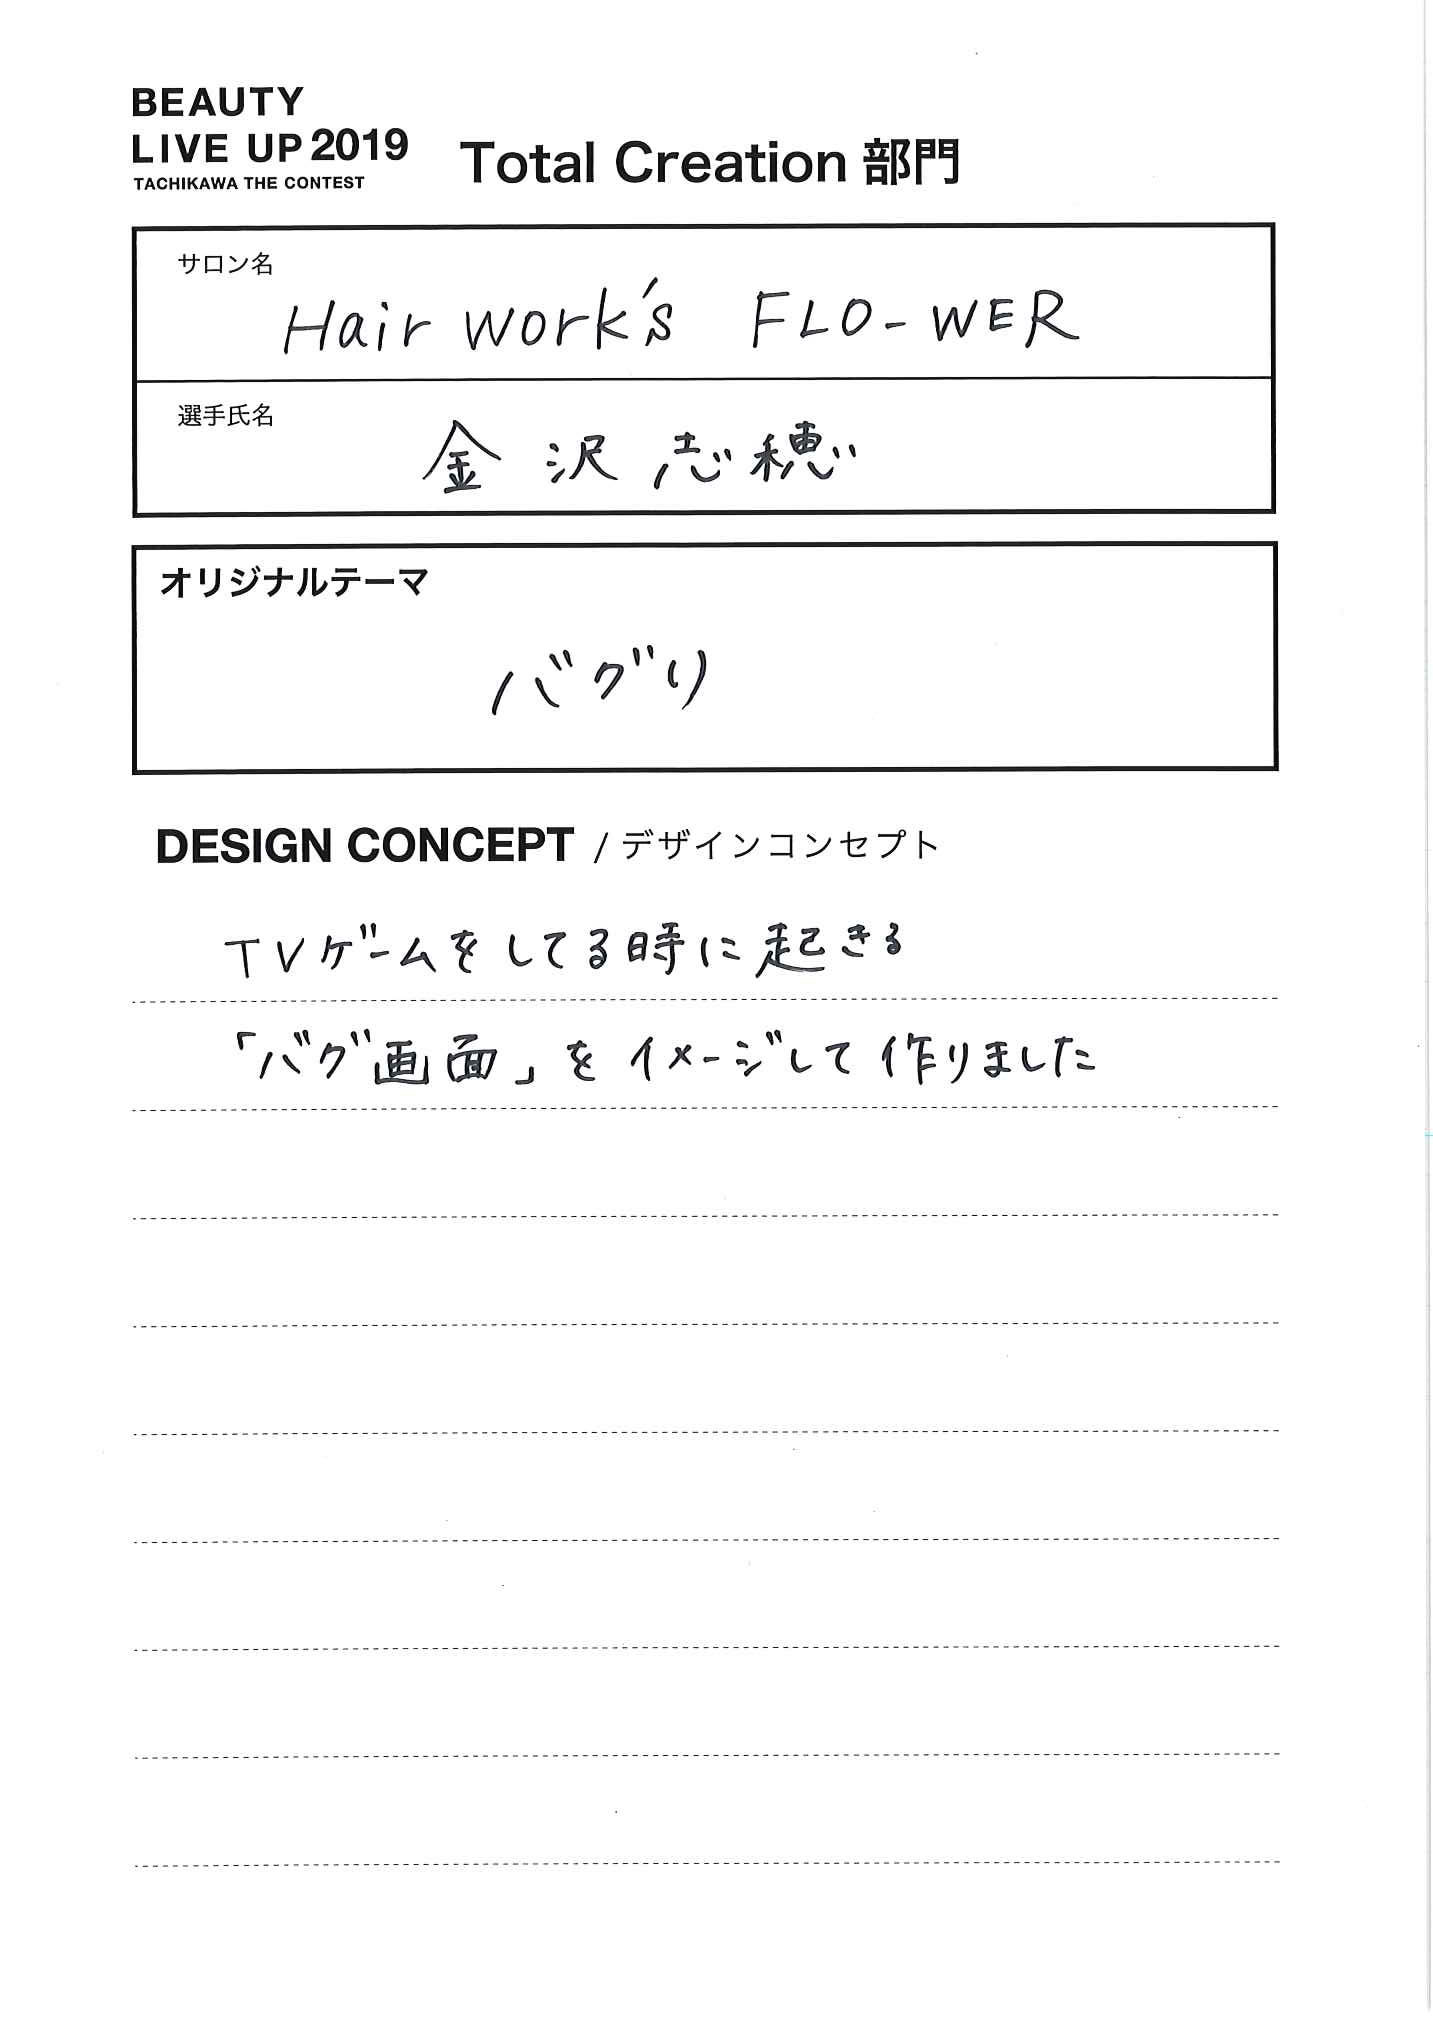 BEAUTY
LIVE UP 2019
TACHIKAWA THE CONTEST
Total Creation 部門
サロン名
Hair work's FLO-WER
選手氏名
金沢志穂
オリジナルテーマ
バグり
DESIGN CONCEPT / デザインコンセプト
TVゲームをしてる時に起きる
「バグ画面」をイメージして作りました